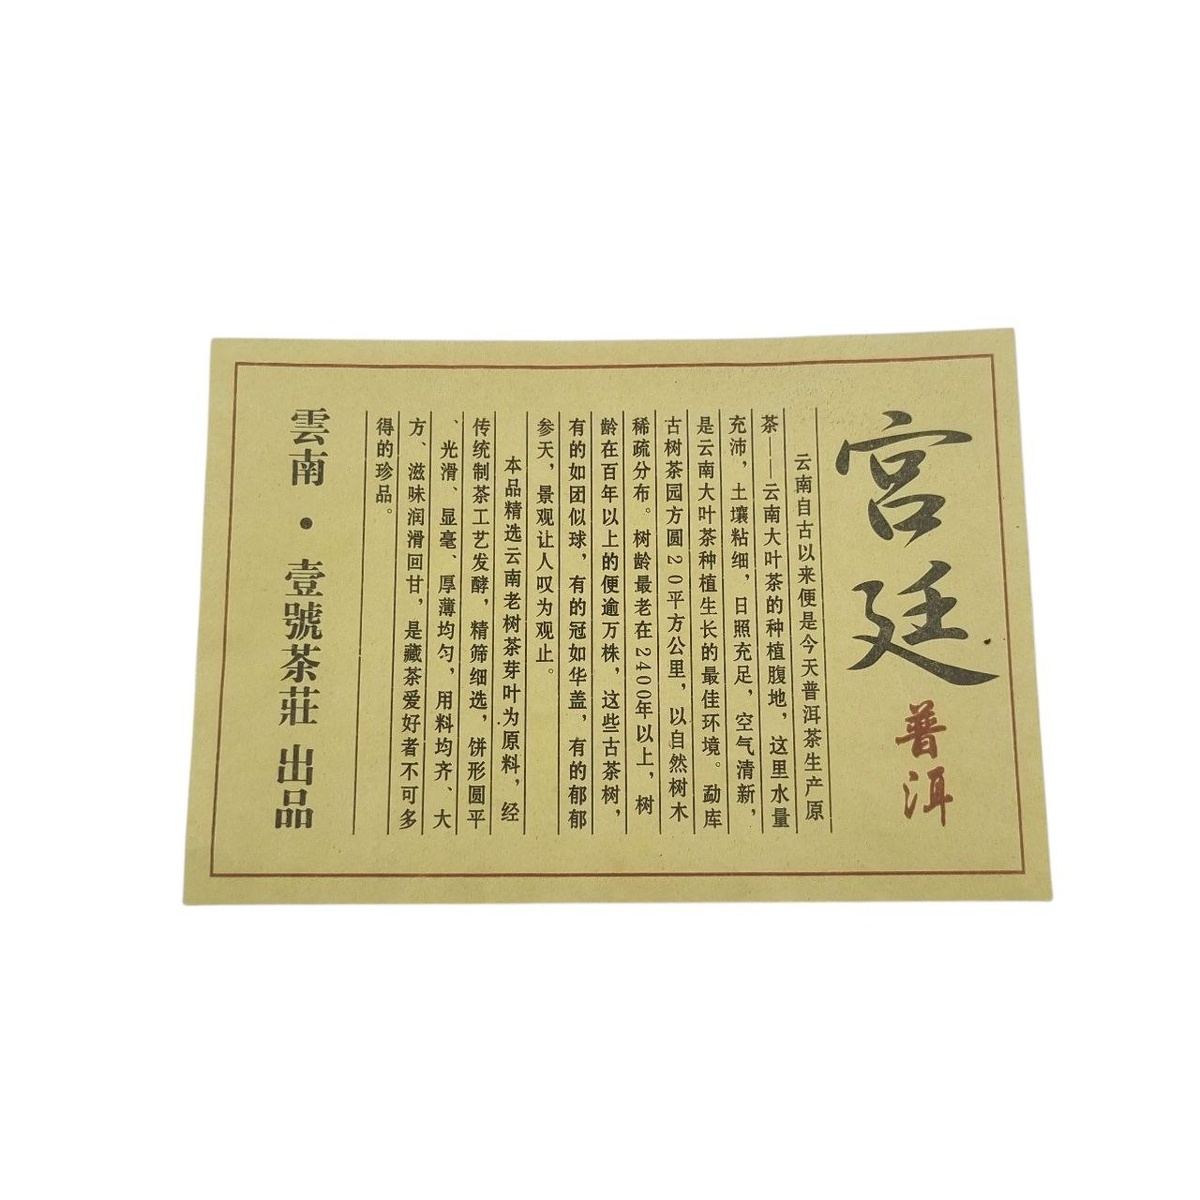 宫廷
普洱
云南自古以来便是今天普洱茶生产原
茶——云南大叶茶的种植腹地，这里水量
充沛，土壤粘细，日照充足，空气清新，
是云南大叶茶种植生长的最佳环境。勐库
古树茶园方圆20平方公里，以自然树木
稀疏分布。树龄最老在2400年以上，树
龄在百年以上的便逾万株，这些古茶树，
有的如团似球，有的冠如华盖，有的郁郁
参天，景观让人叹为观止。
本品精选云南老树茶芽叶为原料，经
传统制茶工艺发酵，精筛细选，饼形圆平
、光滑、显毫、厚薄均匀，用料均齐、大
方、滋味润滑回甘，是藏茶爱好者不可多
得的珍品。
雲南·壹號茶莊 出品